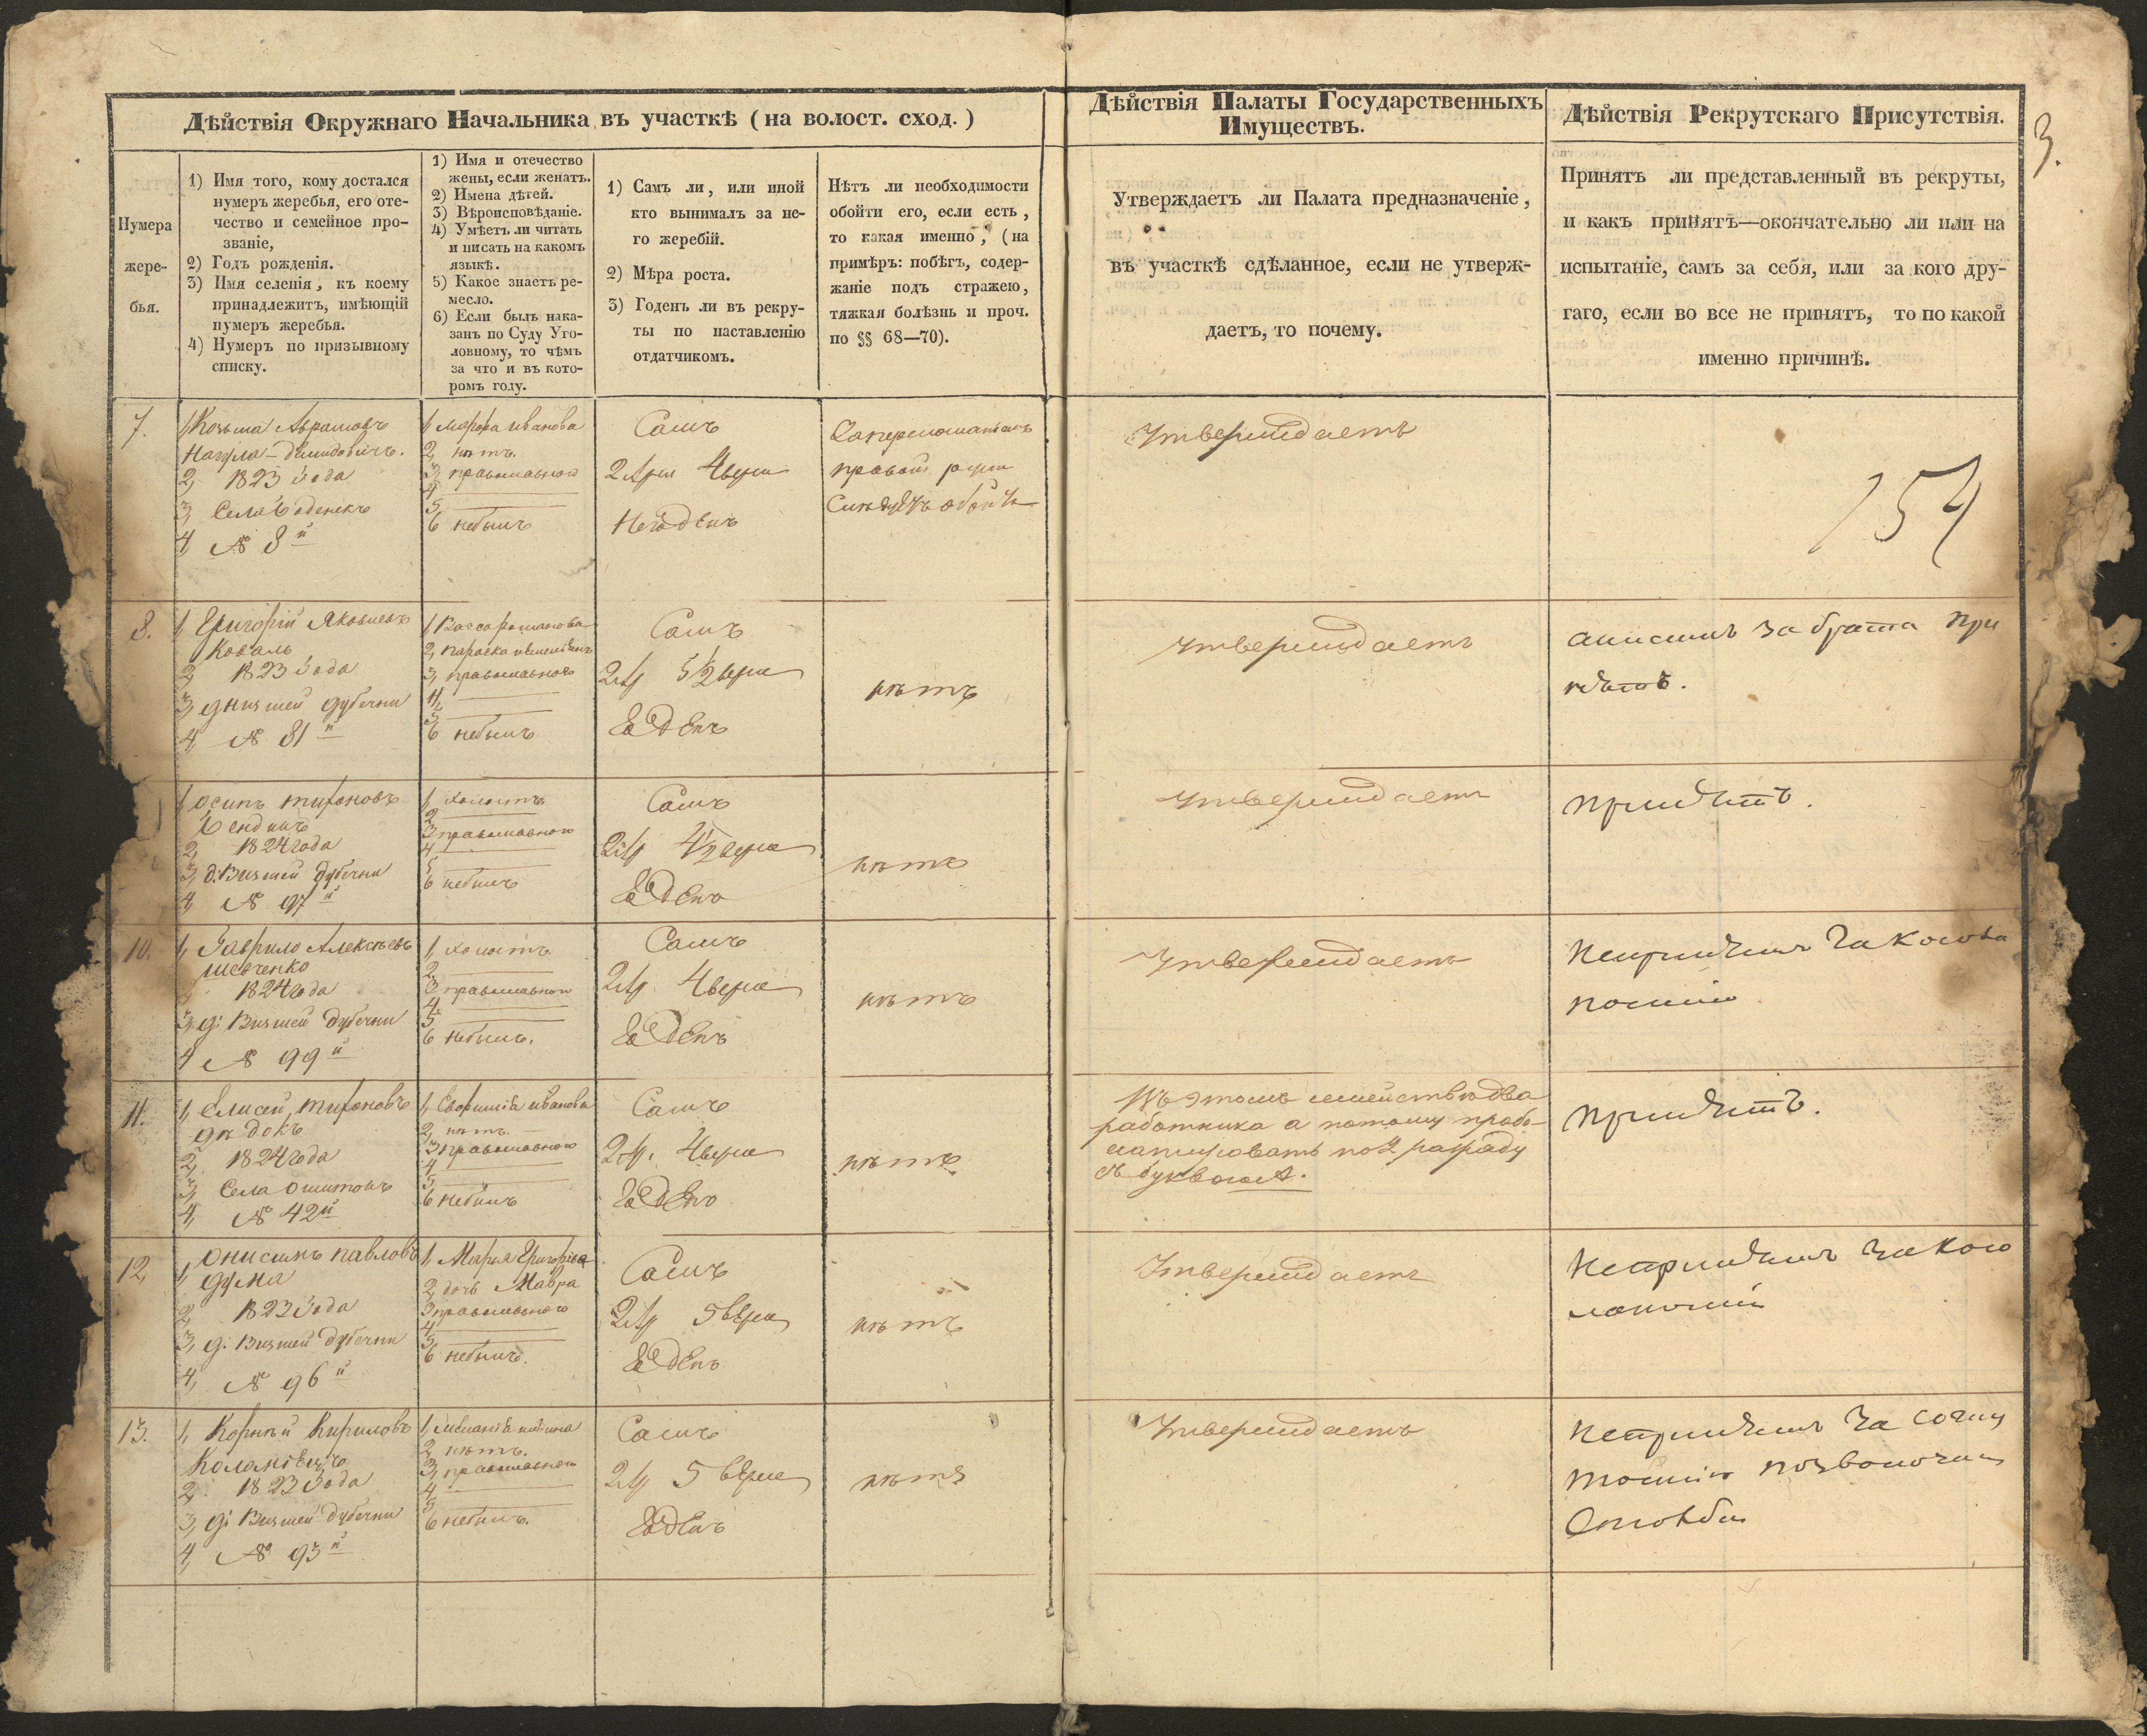 Дѣйствія Окружнаго Начальника въ участкѣ (на волост. сход.)
Дѣйствія Палаты Государственныхъ
Имуществъ.
Дѣйствія Рекрутскаго Присутствія.
3.
Нумера
жере-
бья.
1) Имя того, кому достался
нумеръ жеребья, его оте-
чество и семейное про-
званіе,
2) Годъ рожденія.
3) Имя селенія, къ коему
принадлежитъ, имѣющій
нумеръ жеребья.
4) Нумеръ по призывному
списку.
1) Имя и отечество
жены, если женатъ.
2) Имена дѣтей.
3) Вѣроисповѣданіе.
4) Умѣетъ ли читать
и писать на какомъ
языкѣ.
5) Какое знаетъ ре-
месло.
6) Если былъ нака-
занъ по Суду Уго-
ловному, то чѣмъ
за что и въ кото-
ромъ году.
1) Самъ ли, или иной
кто вынималъ за не-
го жеребій.
2) Мѣра роста.
3) Годенъ ли въ рекру-
ты по наставленію
отдатчикомъ.
Нѣтъ ли необходимости
обойти его, если есть,
то какая именно, (на
примѣръ: побѣгъ, содер-
жаніе подъ стражею,
тяжкая болѣзнь и проч.
по §§ 68—70).
Утверждаетъ ли Палата предназначеніе,
въ участкѣ сдѣланное, если не утверж-
даетъ, то почему.
Принятъ ли представленный въ рекруты,
и какъ принятъ—окончательно ли или на
испытаніе, самъ за себя, или за кого дру-
гаго, если во все не принятъ, то по какой
именно причинѣ.
7.
1, Козьма Аврамовъ
2, 1823 года
3, Села
4 № 8й
1, Марфа Иванова
2, нѣтъ.
3, православного
4
5
6 небылъ
Самъ
2 Ар 4 верш
Негоденъ
правой руки
Утверждаетъ
154
8.
1, Григорій Яковлевъ
Коваль
2, 1823 года
3, д Низшей Дубечни
4, № 81й
1, Васса Романова
2, Параска
3, православного
4
5
6 небылъ
Самъ
2 Ар 5½ верш
Годенъ
нѣтъ
Утверждаетъ
за брата при
нятъ.
1, Осипъ Тихоновъ
2, 1824 года
3, д: Визшей Дубечни
4, № 97й
1, Холостъ
2
3 православного
4
5
6 небылъ
Самъ
2 Ар 4½ верш
Годенъ
нѣтъ
Утверждаетъ
принятъ.
10.
1, Гаврило Алексѣевъ
Шевченко
1824 года
3, д: Визшей Дубечни
4 № 99й
1, Холостъ
2
3 православного
4
5
6 небылъ.
Самъ
2 Ар. 4 верш
Годенъ
нѣтъ
Утверждаетъ
Непринятъ за
11.
1, Елисей Тихоновъ
Дѣдокъ
2, 1824 года
3, Села Ошитокъ
4, № 42й
1, Евфимія Иванова
2, нѣтъ.
3 православного
4
5
6 небылъ
Самъ
2 Ар. 4 верш
Годенъ
нѣтъ
Въ этомъ семействѣ два
работника а потому
по 2 разряду
съ буквою А.
принятъ.
12,
1, Онисимъ Павловъ
Дума
2, 1823 года
3, д: Визшей Дубечни
4, № 96й
1, Марья Григорьева
2, дочь Мавра
3 православного
4
5
6 небылъ.
Самъ
2 Ар 5 верш
Годенъ
нѣтъ
Утверждаетъ
Непринятъ за
13.
1, Корнѣй Кириловъ
2. 1823 года
3, д: Визшей Дубечни
4, № 93й
1,
2, нѣтъ.
3, православного
4
5
6 небылъ.
Самъ
2 Ар 5 верш
Годенъ
нѣтъ
Утверждаетъ
Непринятъ за